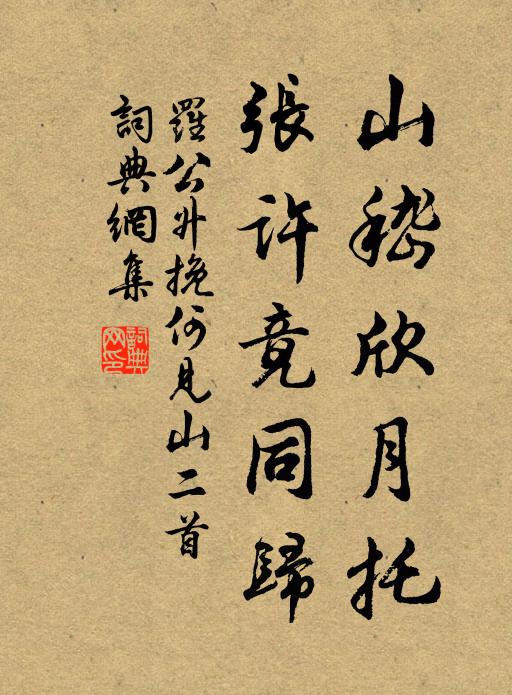 山嵇欣月托
張許竟同歸
羅公升挽何見山二首
詞典網集
詞典網印